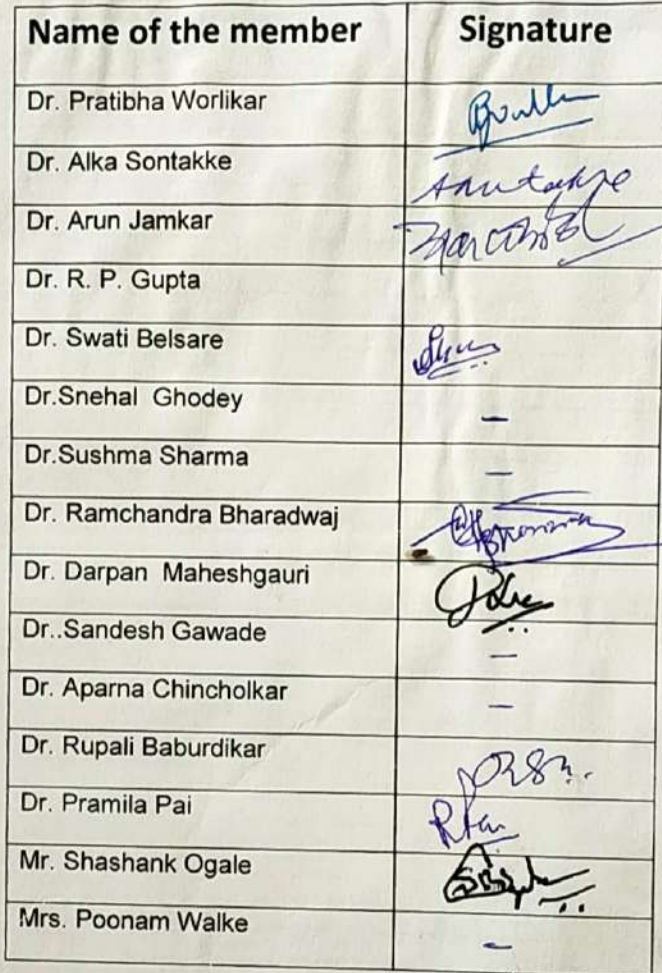 Name of the member Signature
Dr. Pratibha Worlikar
Dr. Alka Sontakke
Dr. Arun Jamkar
Dr. R. P. Gupta
Dr. Swati Belsare
Dr.Snehal Ghodey –
Dr.Sushma Sharma –
Dr. Ramchandra Bharadwaj
Dr. Darpan Maheshgauri
Dr..Sandesh Gawade –
Dr. Aparna Chincholkar –
Dr. Rupali Baburdikar
Dr. Pramila Pai
Mr. Shashank Ogale
Mrs. Poonam Walke –